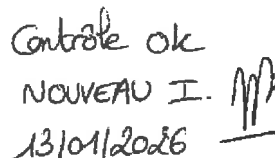 Contrôle ok
NOUVEAU I.
13/01/2026